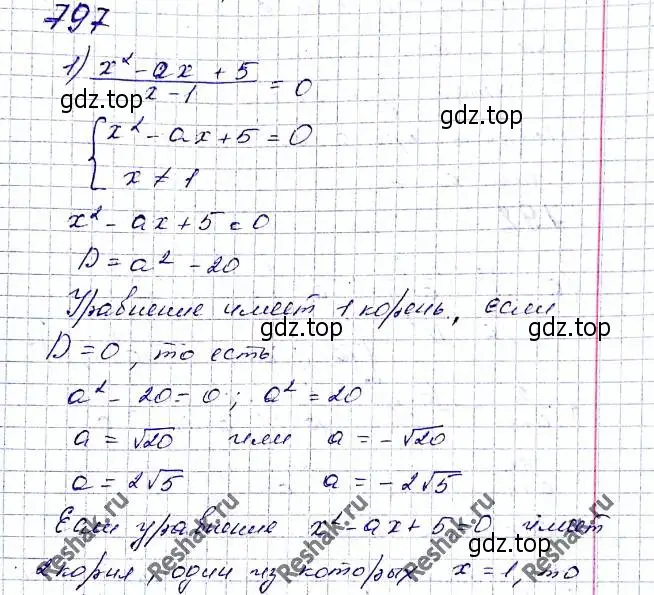 797
1) x² - ax + 5
x - 1 = 0
гдz.top
гдz.top
{ x² - ax + 5 = 0
x ≠ 1
x² - ax + 5 = 0
D = a² - 20
Уравнение имеет 1 корень, если
гдz.top
D = 0, то есть
a² - 20 = 0; a² = 20
a = √20 или a = -√20
a = 2√5 a = -2√5
Если уравнение x² - ax + 5 = 0 имеет
гдz.top
2 корня и один из которых x = 1, то
Reshak.ru
Reshak.ru
Reshak.ru
Reshak.ru
Reshak.ru